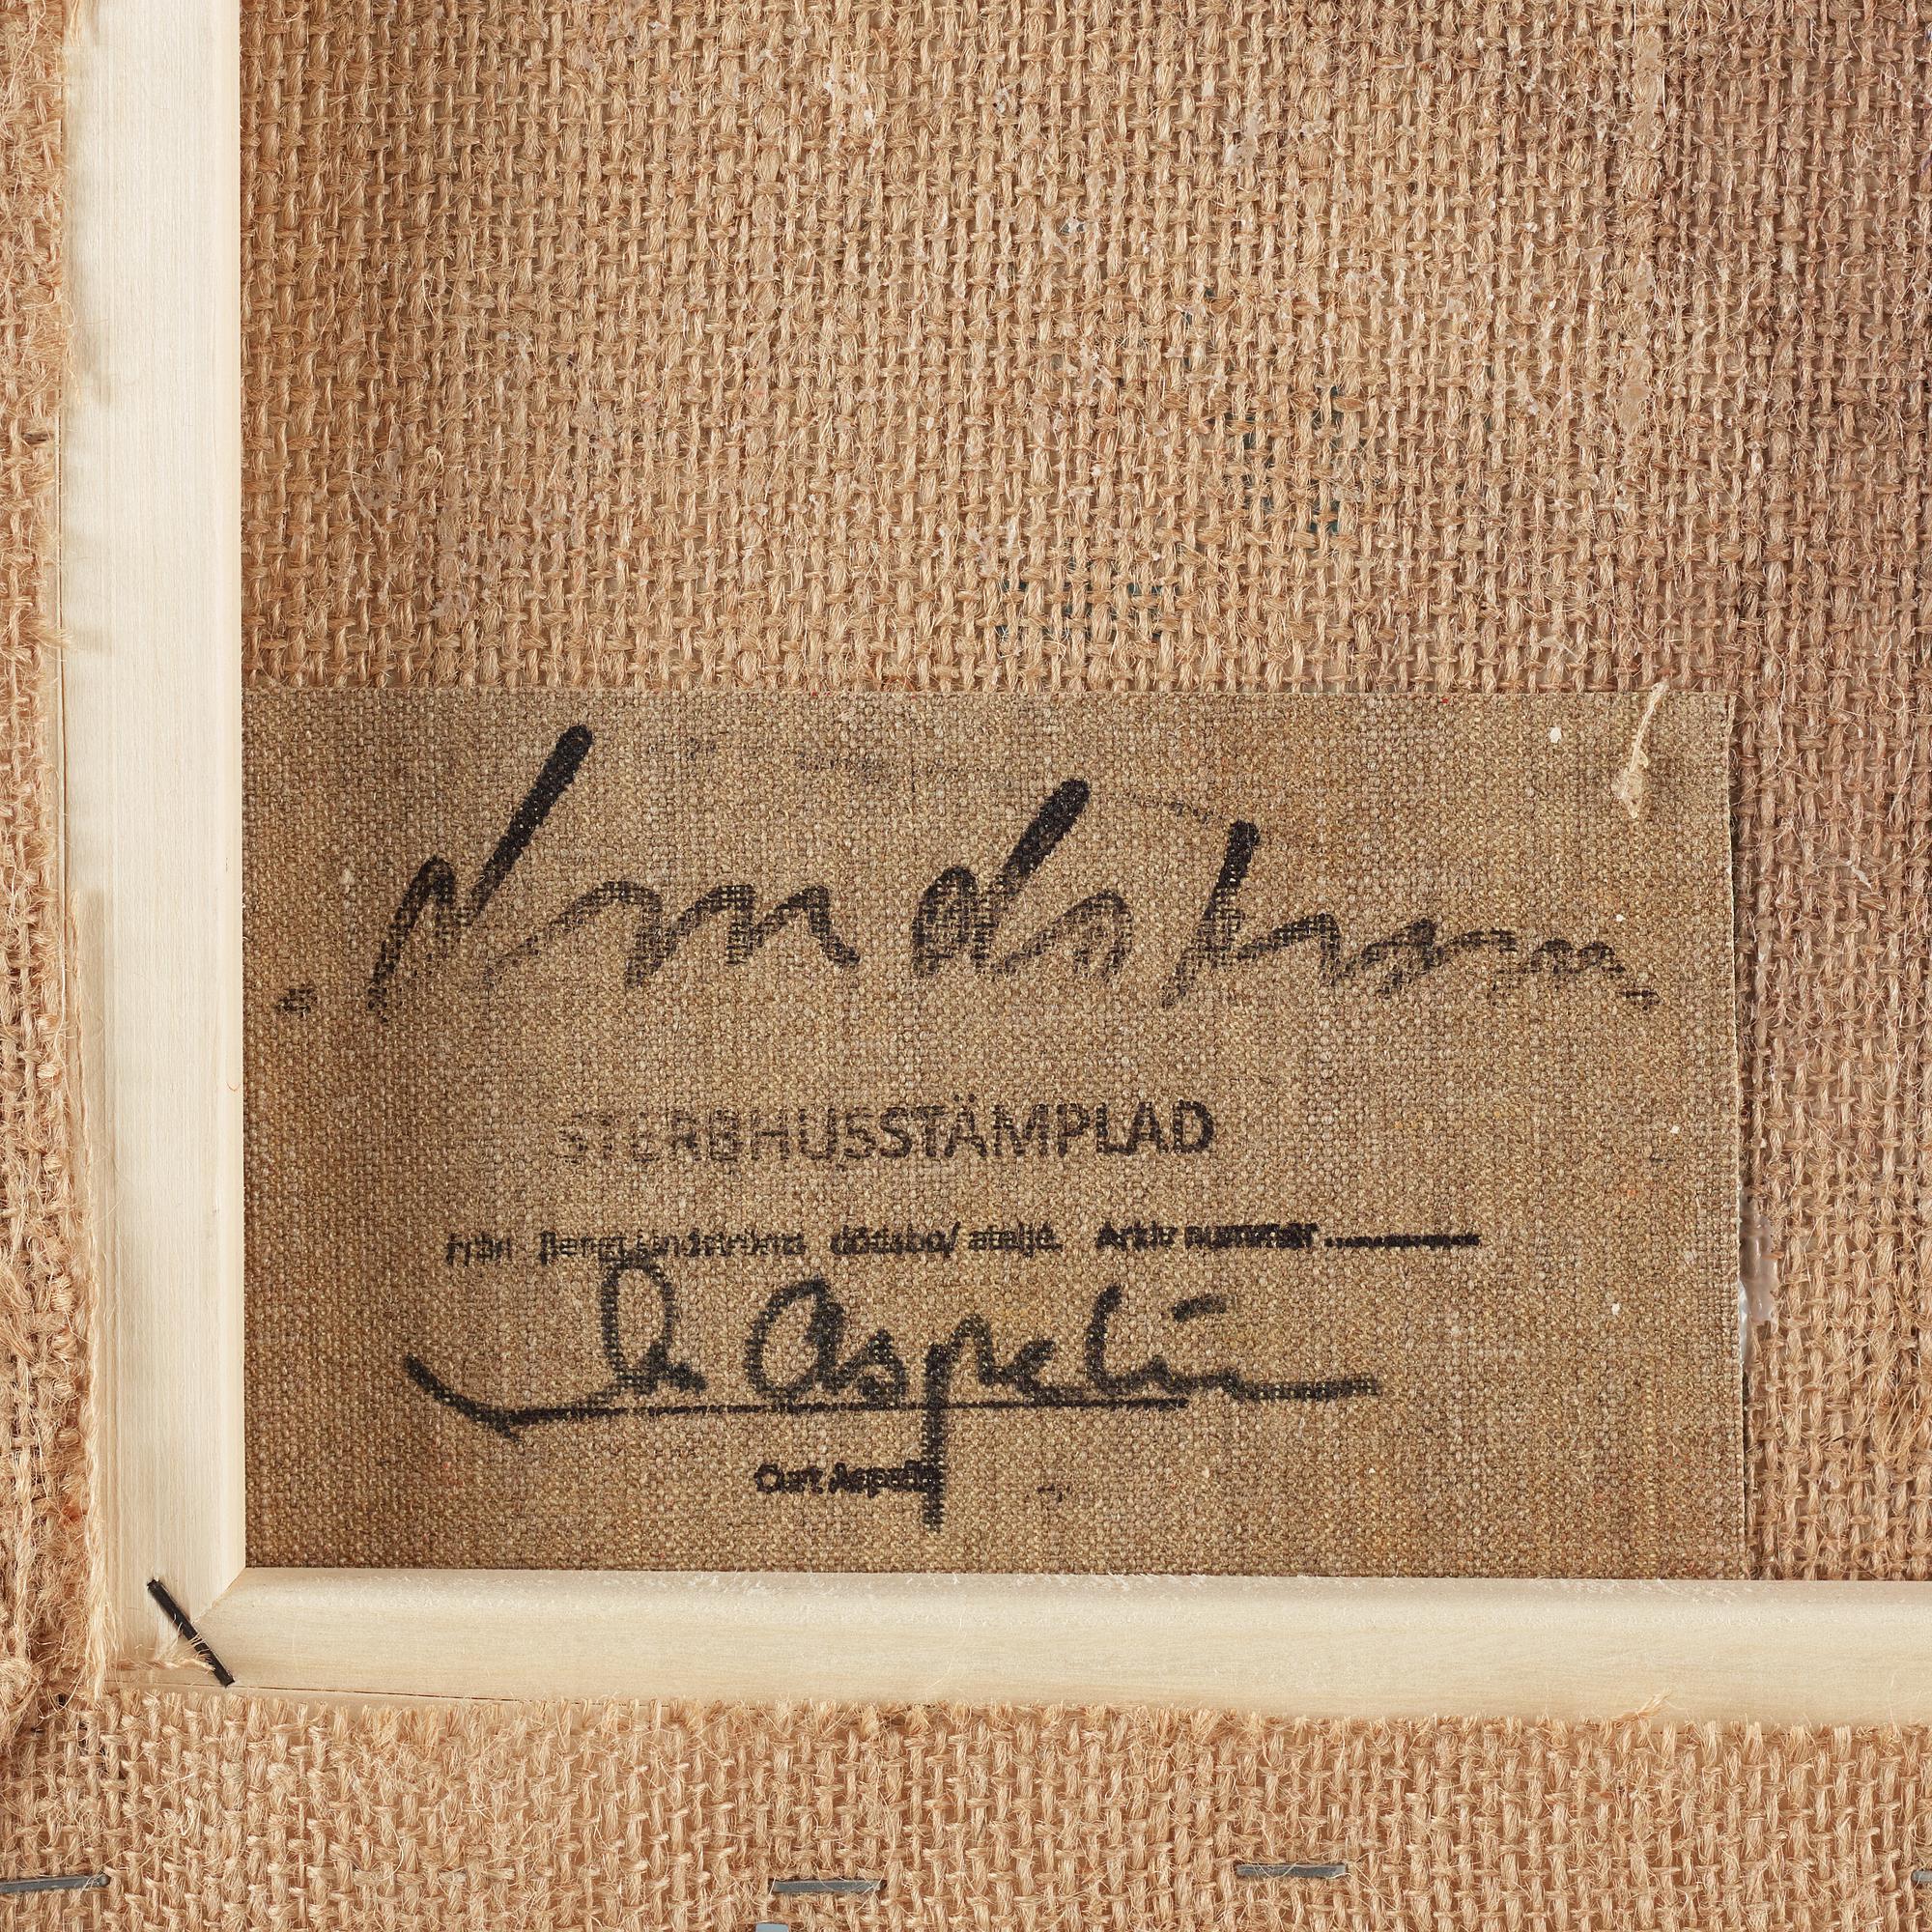 Lindström
STERBHUSSTÄMPLAD
Från Bengt Lindströms dödsbo/ ateljé. Arkiv nummer ..............
C Aspelin
Curt Aspelin